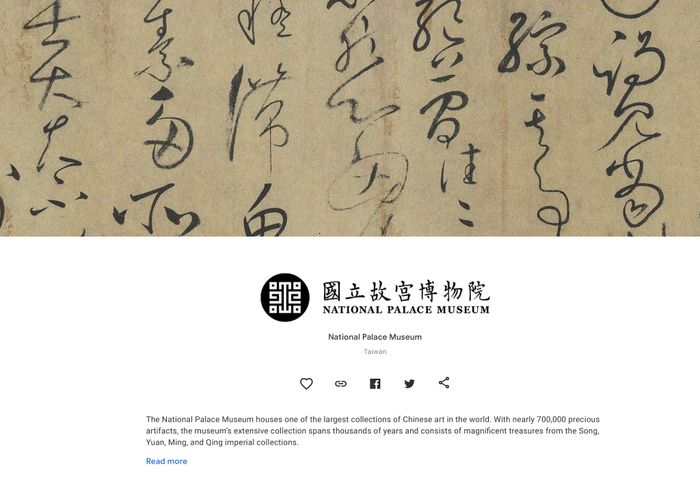 謁見當
綜其事
絕簡往〻
然心胸
疑滯魚
素多所
士大夫不
國立故宮博物院
NATIONAL PALACE MUSEUM
National Palace Museum
Taiwan
The National Palace Museum houses one of the largest collections of Chinese art in the world. With nearly 700,000 precious
artifacts, the museum's extensive collection spans thousands of years and consists of magnificent treasures from the Song,
Yuan, Ming, and Qing imperial collections.
Read more